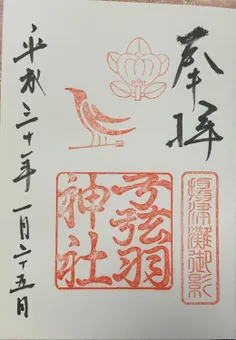 奉拝
摂津灘御影
弓弦羽
神社
平成三十年一月二十五日